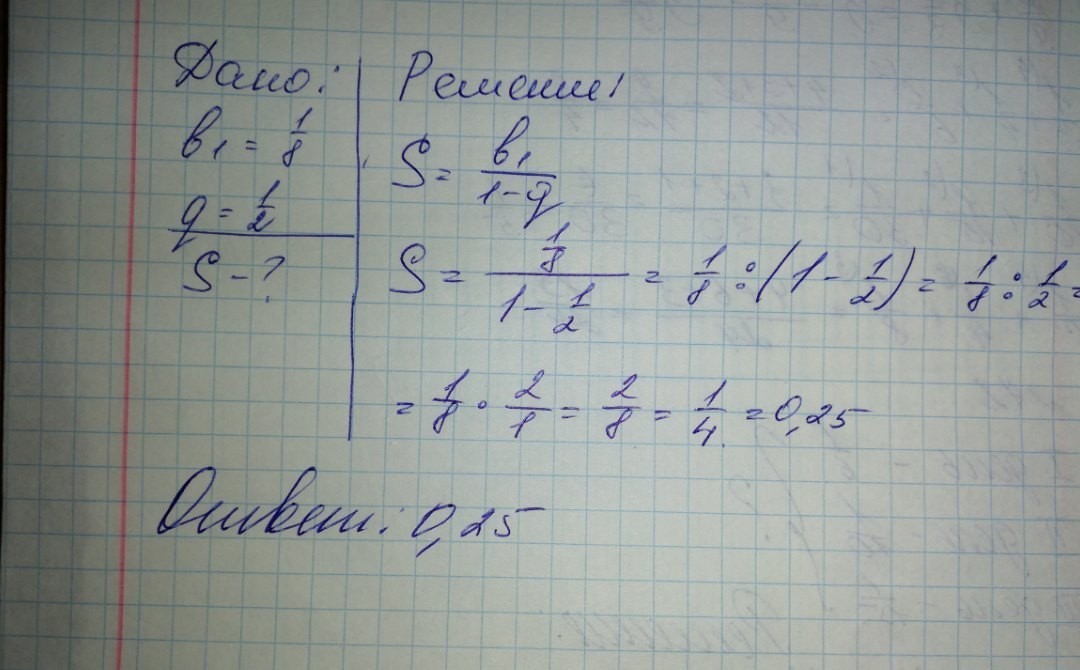 Дано:
b₁ = 1/8
q = 1/2
S - ?
Решение:
S = b₁/(1-q)
S = (1/8)/(1 - 1/2) = 1/8 : (1 - 1/2) = 1/8 : 1/2 =
= 1/8 · 2/1 = 2/8 = 1/4 = 0,25
Ответ: 0,25